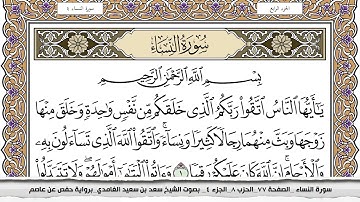 الجزء الرابع
سورة النساء ٤
سُورَةُ النِّسَاءِ
بِسْمِ اللَّهِ الرَّحْمَٰنِ الرَّحِيمِ
يَٰٓأَيُّهَا النَّاسُ اتَّقُوا رَبَّكُمُ الَّذِى خَلَقَكُم مِّن نَّفْسٍ وَٰحِدَةٍ وَخَلَقَ مِنْهَا
زَوْجَهَا وَبَثَّ مِنْهُمَا رِجَالًا كَثِيرًا وَنِسَآءً وَاتَّقُوا اللَّهَ الَّذِى تَسَآءَلُونَ بِهِۦ
وَالْأَرْحَامَ إِنَّ اللَّهَ كَانَ عَلَيْكُمْ رَقِيبًا ١ وَءَاتُوا الْيَتَٰمَىٰٓ أَمْوَٰلَهُمْ وَلَا تَتَبَدَّلُوا
سورة النساء _ الصفحة ٧٧_ الحزب ٨_ الجزء ٤_ بصوت الشيخ سعد بن سعيد الغامدي_ برواية حفص عن عاصم